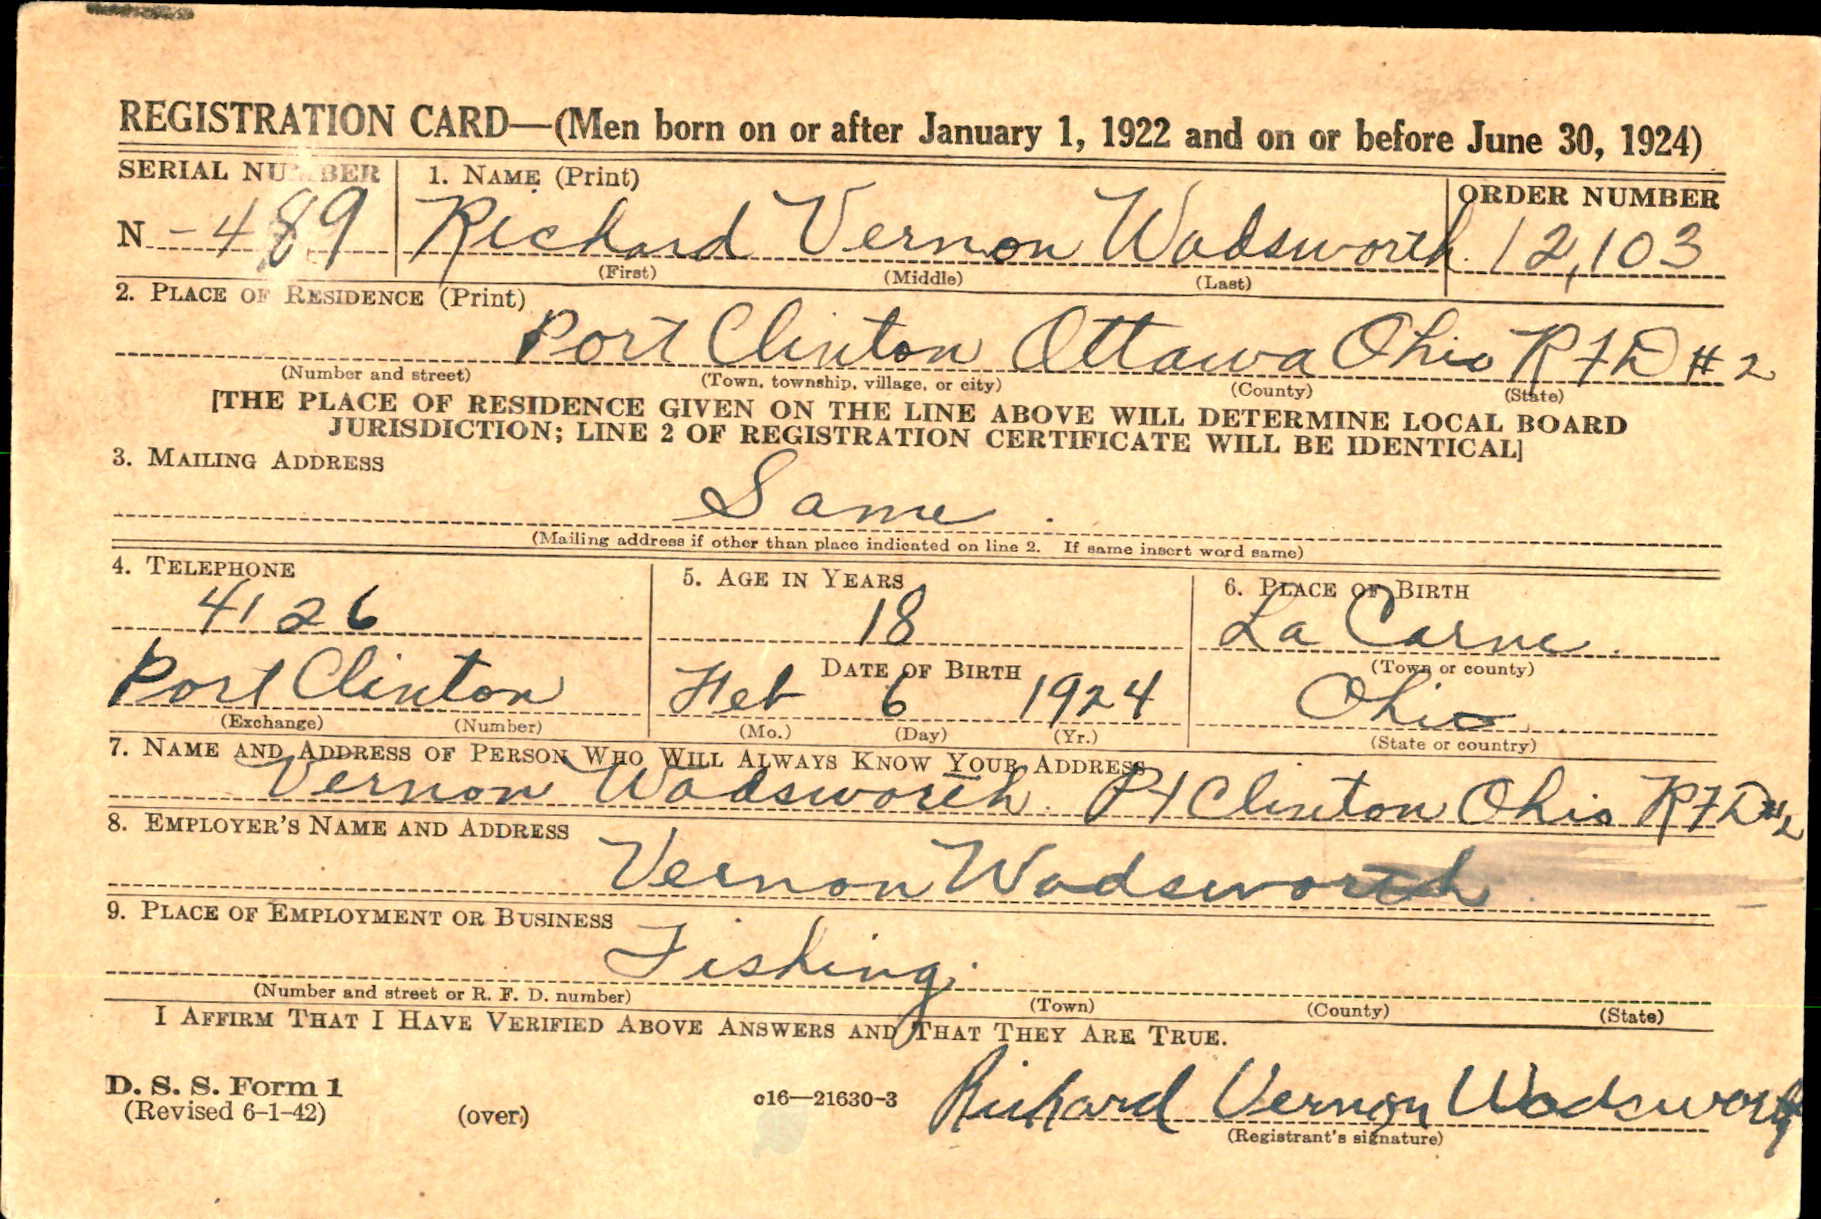 REGISTRATION CARD—(Men born on or after January 1, 1922 and on or before June 30, 1924)
SERIAL NUMBER 1. NAME (Print) ORDER NUMBER
N -489 Richard Vernon Wadsworth. 12,103
(First) (Middle) (Last)
2. PLACE OF RESIDENCE (Print)
Port Clinton Ottawa Ohio RFD #2
(Number and street) (Town, township, village, or city) (County) (State)
[THE PLACE OF RESIDENCE GIVEN ON THE LINE ABOVE WILL DETERMINE LOCAL BOARD
JURISDICTION; LINE 2 OF REGISTRATION CERTIFICATE WILL BE IDENTICAL]
3. MAILING ADDRESS
Same
(Mailing address if other than place indicated on line 2. If same insert word same)
4. TELEPHONE 5. AGE IN YEARS 6. PLACE OF BIRTH
4126 18 La Carne.
DATE OF BIRTH (Town or county)
Port Clinton Feb 6 1924 Ohio
(Exchange) (Number) (Mo.) (Day) (Yr.) (State or country)
7. NAME AND ADDRESS OF PERSON WHO WILL ALWAYS KNOW YOUR ADDRESS
Vernon Wadsworth. Pt Clinton Ohio RFD #2
8. EMPLOYER'S NAME AND ADDRESS
Vernon Wadsworth
9. PLACE OF EMPLOYMENT OR BUSINESS
Fishing.
(Number and street or R. F. D. number) (Town) (County) (State)
I AFFIRM THAT I HAVE VERIFIED ABOVE ANSWERS AND THAT THEY ARE TRUE.
D. S. S. Form 1
(Revised 6-1-42) (over) c16—21630-3 Richard Vernon Wadsworth
(Registrant's signature)